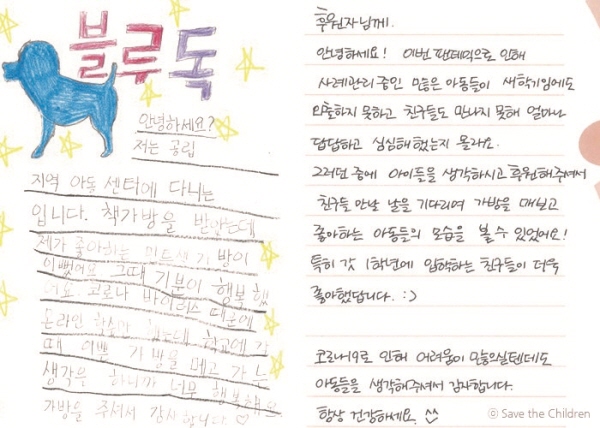 블루독
안녕하세요?
저는 공립
지역 아동센터에 다니는
입니다. 책가방을 받았는데
제가 좋아하는 민트색 가방이
이뻤어요 그때 기분이 행복했
어요 코로나 바이러스 때문에
온라인 학습만 했는데 학교에 갈
때 이쁜 가방을 메고 가는
생각을 하니까 너무 행복해요
가방을 주셔서 감사합니다 ♡
후원자님께.
안녕하세요! 이번 팬데믹으로 인해
사례관리 중인 많은 아동들이 새학기임에도
외출하지 못하고 친구들도 만나지 못해 얼마나
답답하고 심심해 했는지 몰라요.
그러던 중에 아이들을 생각하시고 후원해주셔서
친구들 만날 날을 기다리며 가방을 매보고
좋아하는 아동들의 모습을 볼 수 있었어요!
특히 갓 1학년에 입학하는 친구들이 더욱
좋아했답니다. :)
코로나19로 인해 어려움이 많으실텐데도
아동들을 생각해주셔서 감사합니다.
항상 건강하세요. ^^
© Save the Children